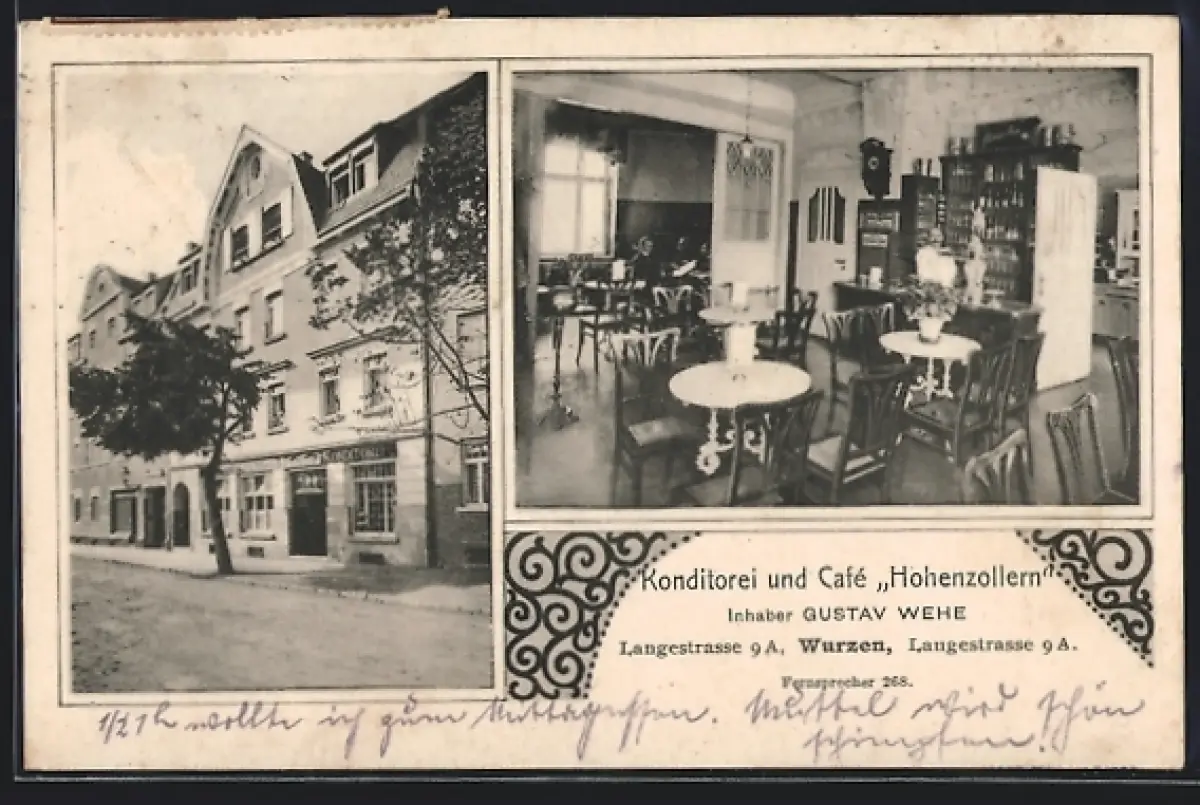 KONDITOREI
Konditorei und Café „Hohenzollern"
Inhaber GUSTAV WEHE
Langestrasse 9 A, Wurzen, Langestrasse 9 A.
Fernsprecher 268.
1/2 1 h wollte ich zum Mittagessen. Muttel wird schön
schimpfen!